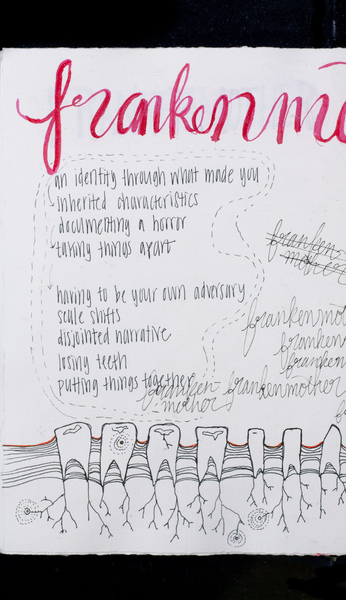 frankenmo
an identity through what made you
inherited characteristics
documenting a horror
taking things apart
having to be your own adversary
scale shifts
disjointed narrative
losing teeth
putting things together
franken
mother
frankenmot
frankenm
franken
frankenmother
franken
mother